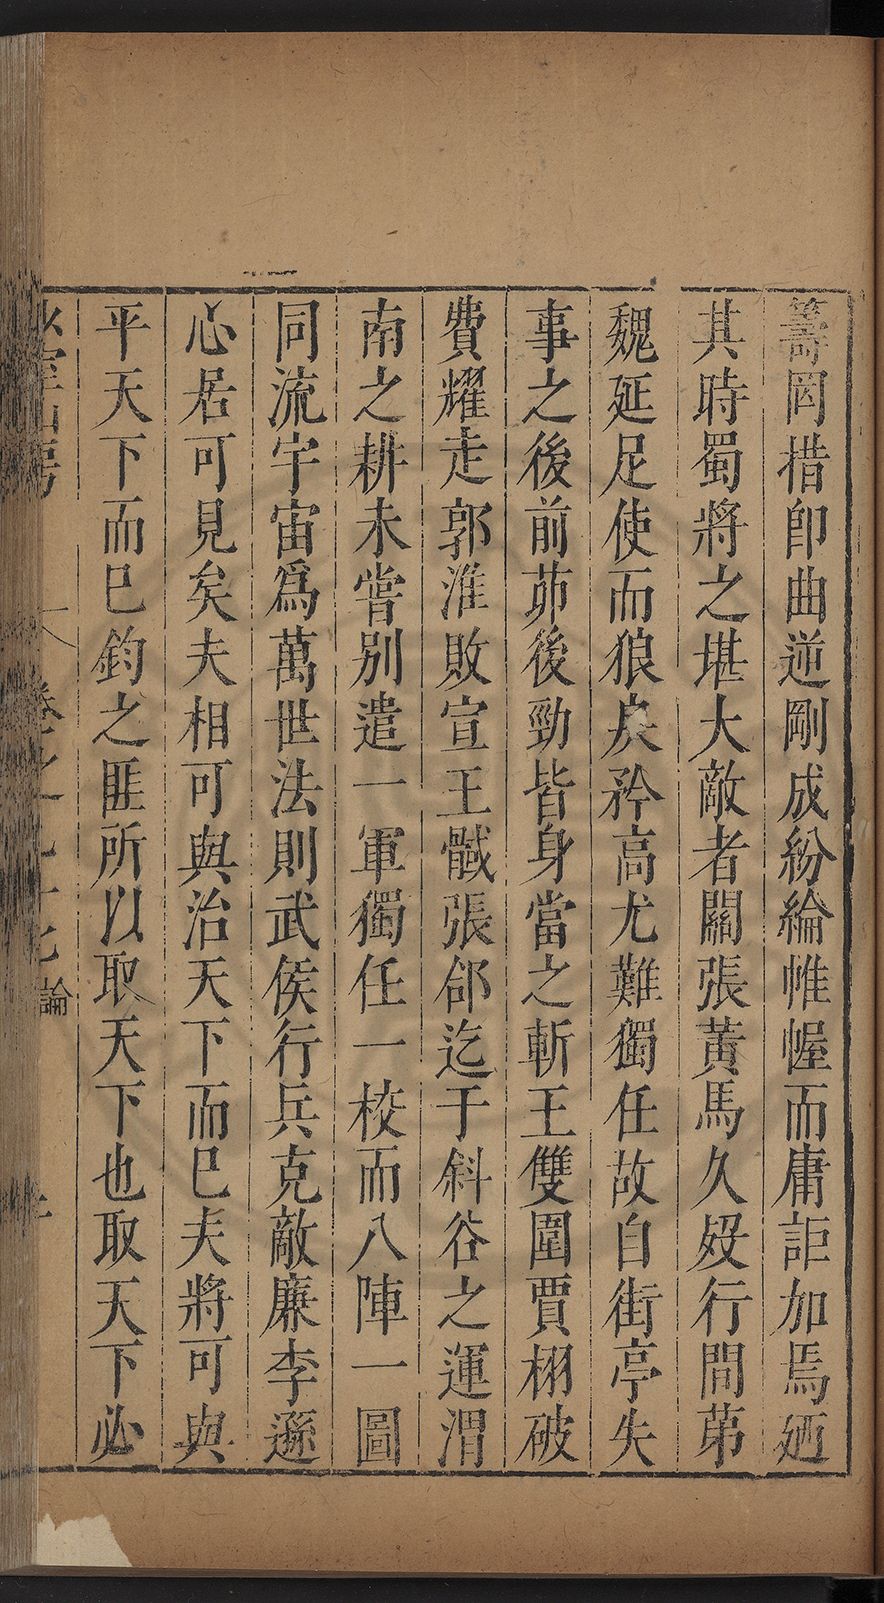 籌罔措卽曲逆剛成紛綸帷幄而庸詎加焉廼
其時蜀將之堪大敵者關張黃馬久歿行間苐
魏延足使而狼戾矜高尤難獨任故自街亭失
事之後前茆後勁皆身當之斬王雙圍賈栩破
費耀走郭淮敗宣王馘張郃迄于斜谷之運渭
南之耕未嘗別遣一軍獨任一校而八陣一圖
同流宇宙爲萬世法則武侯行兵克敵廉李遜
心居可見矣夫相可與治天下而巳夫將可與
平天下而巳鈞之匪所以取天下也取天下必
山房 卷之九十七 論